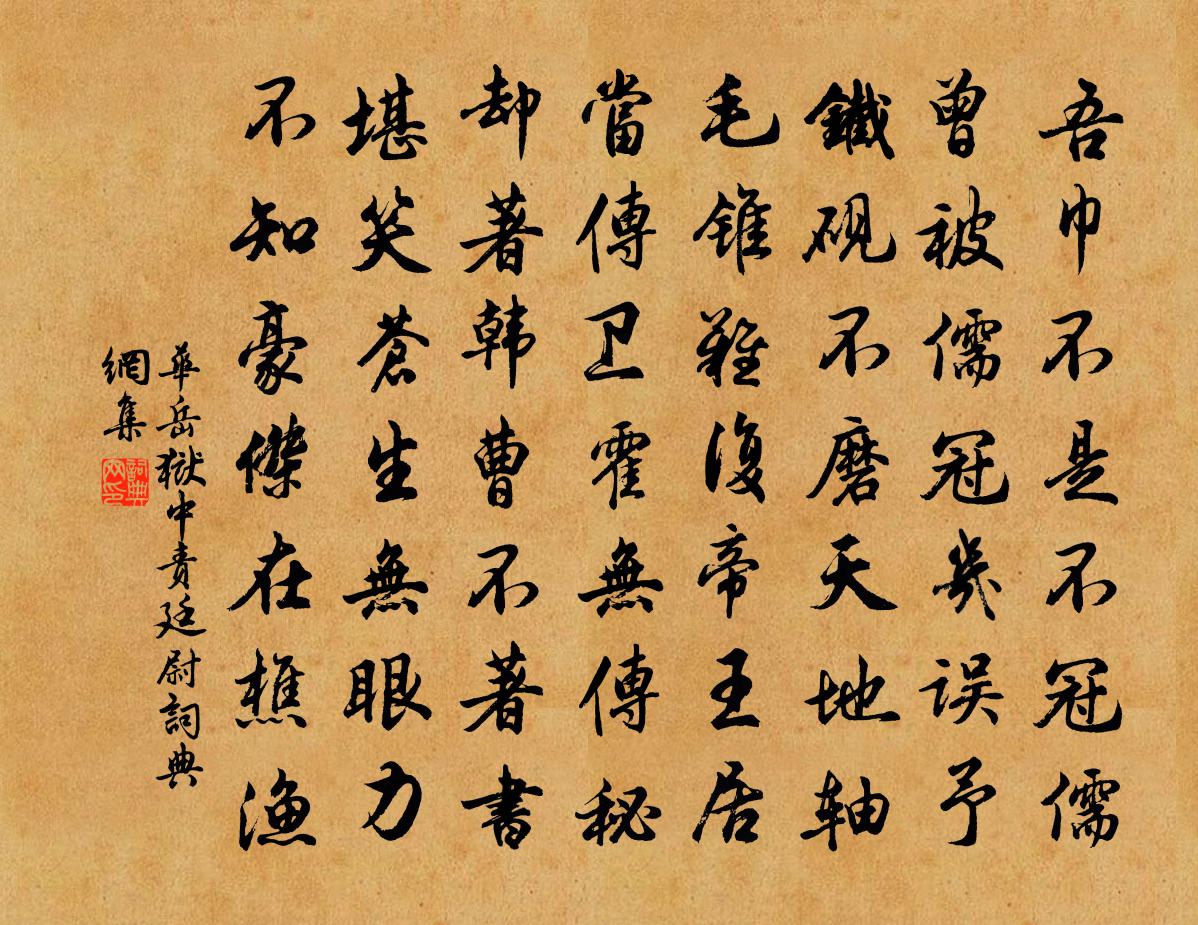 吾巾不是不冠儒
曾被儒冠幾误予
鐵硯不磨天地轴
毛錐難復帝王居
當傳卫霍無傳秘
却著韩曹不著書
堪笑蒼生無眼力
不知豪傑在樵漁
華岳獄中責廷尉詞典
網集
詞典
网印